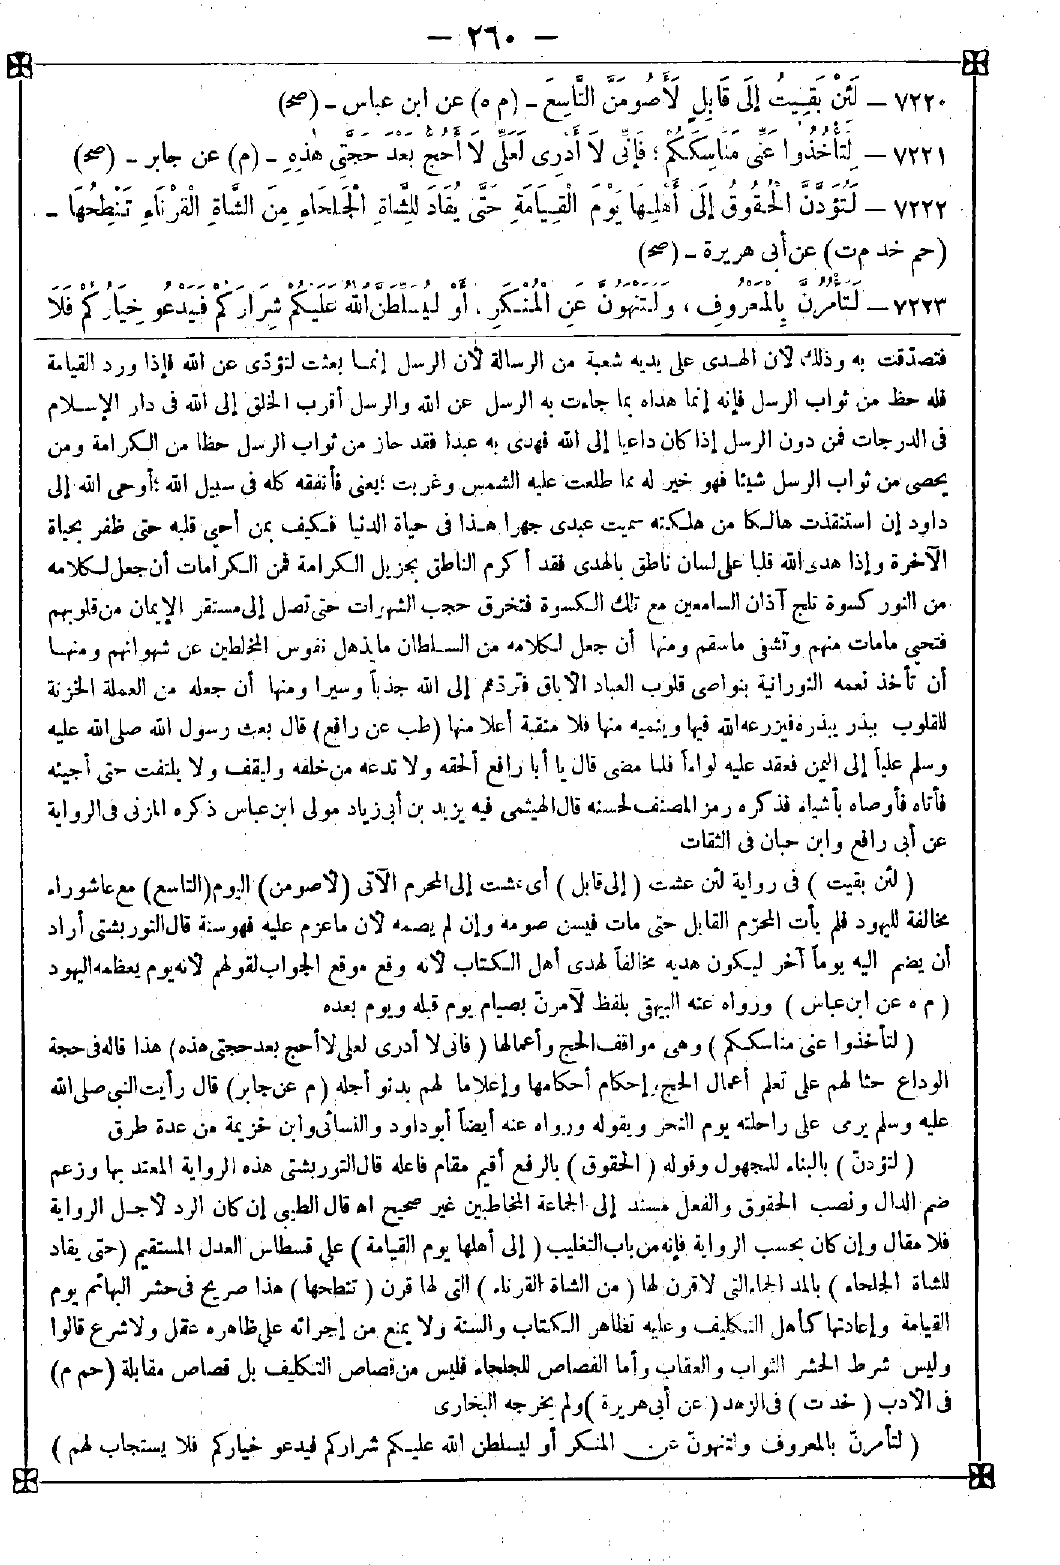 — ٢٦٠ —
٧٢٢٠ — لَئِنْ بَقِيتُ إِلَى قَابِلٍ لَأَصُومَنَّ التَّاسِعَ - (م ه) عن ابن عباس - (صح)
٧٢٢١ — لِتَأْخُذُوا عَنِّي مَنَاسِكَكُمْ؛ فَإِنِّي لَا أَدْرِى لَعَلِّي لَا أَحُجُّ بَعْدَ حَجَّتِي هٰذِهِ - (م) عن جابر - (صح)
٧٢٢٢ — لَتُؤَدَّنَّ الْحُقُوقُ إِلَى أَهْلِهَا يَوْمَ الْقِيَامَةِ حَتَّى يُقَادَ لِلشَّاةِ الْجَلْحَاءِ مِنَ الشَّاةِ الْقَرْنَاءِ تَنْطَحُهَا -
(حم خد م ت) عن أبى هريرة - (صح)
٧٢٢٣ — لَتَأْمُرُنَّ بِالْمَعْرُوفِ، وَلَتَنْهَوُنَّ عَنِ الْمُنْكَرِ، أَوْ لَيُسَلِّطَنَّ اللهُ عَلَيْكُمْ شِرَارَكُمْ فَيَدْعُو خِيَارُكُمْ فَلَا
فتصدّقت به وذلك لأن الهدى على يديه شعبة من الرسالة لأن الرسل إنما بعثت لتؤدّى عن الله فإذا ورد القيامة
فله حظ من ثواب الرسل فإنه إنما هداه بما جاءت به الرسل عن الله والرسل أقرب الخلق إلى الله فى دار الإسلام
فى الدرجات فمن دون الرسل إذا كان داعيا إلى الله فهدى به عبدا فقد حاز من ثواب الرسل حظا من الكرامة ومن
يحصى من ثواب الرسل شيئا فهو خير له مما طلعت عليه الشمس وغربت يعنى فأنفقه كله فى سبيل الله أوحى الله إلى
داود إن استنقذت هالكا من هلكته سميت عبدى جهرا هذا فى حياة الدنيا فكيف بمن أحي قلبه حتى ظفر بحياة
الآخرة وإذا هدى الله قلبا على لسان ناطق بالهدى فقد أكرم الناطق بجزيل الكرامة فمن الكرامات أن جعل لكلامه
من النور كسوة تلج آذان السامعين مع تلك الكسوة فتخرق حجب الشهوات حتى تصل إلى مستقر الإيمان من قلوبهم
فتحيي مامات منهم وتشفى ماسقم ومنها أن جعل لكلامه من السلطان مايذهل نفوس المخلطين عن شهواتهم ومنها
أن تأخذ نعمه النورانية بنواصى قلوب العباد الاباق فتردهم إلى الله جذبا وسيرا ومنها أن جعله من العملة الخزنة
للقلوب يبذر بذره فيزرعه الله فيها وينميه منها فلا منقبة أعلا منها (طب عن رافع) قال بعث رسول الله صلى الله عليه
وسلم علياً إلى اليمن فعقد عليه لواءاً فلما مضى قال يا أبا رافع ألحقه ولا تدعه من خلفه وليقف ولا يلتفت حتى أجيئه
فأتاه فأوصاه بأشياء فذكره رمز المصنف لحسنه قال الهيثمى فيه يزيد بن أبى زياد مولى ابن عباس ذكره المزنى فى الرواية
عن أبى رافع وابن حبان فى الثقات
(لئن بقيت) فى رواية لئن عشت (إلى قابل) أى عشت إلى المحرم الآتى (لأصومن) اليوم (التاسع) مع عاشوراء
مخالفة لليهود فلم يأت المحرّم القابل حتى مات فيسن صومه وإن لم يصمه لأن ماعزم عليه فهو سنة قال التوربشتى أراد
أن يضم اليه يوماً آخر ليكون هديه مخالفاً لهدى أهل الكتاب لأنه وقع موقع الجواب لقولهم لأنه يوم يعظمه اليهود
(م ه عن ابن عباس) ورواه عنه البيهقى بلفظ لآمرنّ بصيام يوم قبله ويوم بعده
(لتأخذوا عنى مناسككم) وهى مواقف الحج وأعمالها (فانى لا أدرى لعلى لا أحج بعد حجتى هذه) هذا قاله فى حجة
الوداع حثا لهم على تعلم أعمال الحج وإحكام أحكامها وإعلاما لهم بدنو أجله (م عن جابر) قال رأيت النبى صلى الله
عليه وسلم يرمى على راحلته يوم النحر ويقوله ورواه عنه أيضاً أبو داود والنسائى وابن خزيمة من عدة طرق
(لتؤدنّ) بالبناء للمجهول وقوله (الحقوق) بالرفع أقيم مقام فاعله قال التوربشتى هذه الرواية المعتد بها وزعم
ضم الدال ونصب الحقوق والفعل مسند إلى الجماعة المخاطبين غير صحيح اه قال الطيبى إن كان الرد لأجل الرواية
فلا مقال وإن كان بحسب الرواية فإنه من باب التغليب (إلى أهلها يوم القيامة) على قسطاس العدل المستقيم (حتى يقاد
للشاة الجلحاء) بالمد الجماء التى لا قرن لها (من الشاة القرناء) التى لها قرن (تنطحها) هذا صريح فى حشر البهائم يوم
القيامة وإعادتها كأهل التكليف وعليه تظاهر الكتاب والسنة ولا يمنع من إجرائه على ظاهره عقل ولا شرع قالوا
وليس شرط الحشر الثواب والعقاب وأما القصاص للجلحاء فليس من قصاص التكليف بل قصاص مقابلة (حم م)
فى الأدب (خد ت) فى الزهد (عن أبى هريرة) ولم يخرجه البخارى
(لتأمرنّ بالمعروف ولتنهونّ عن المنكر أو ليسلطن الله عليكم شراركم فيدعو خياركم فلا يستجاب لهم)